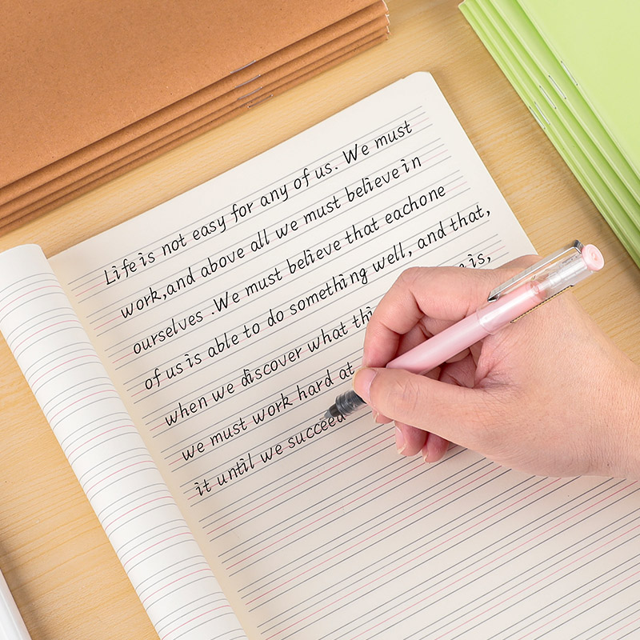 Life is not easy for any of us. We must
work,and above all we must believe in
ourselves .We must believe that eachone
of us is able to do something well, and that,
when we discover what is,
we must work hard at
it until we succeed